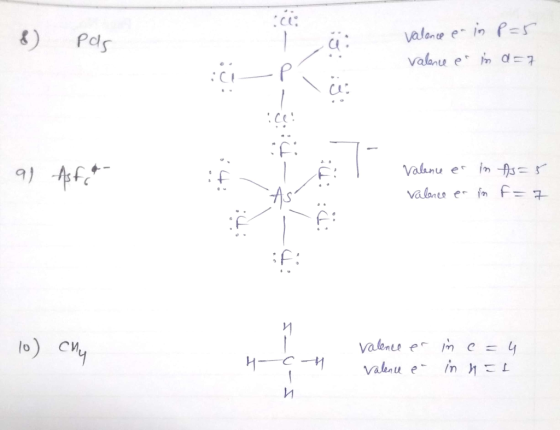 8) PCl5
:Cl:
Cl:
:Cl P
Cl:
:Cl:
Valence e- in P=5
Valence e- in Cl=7
9) AsF6-
:F: ]-
:F F:
As
:F F:
:F:
Valence e- in As=5
Valence e- in F=7
10) CH4
H
H-C-H
H
Valence e- in C = 4
Valence e- in H = 1